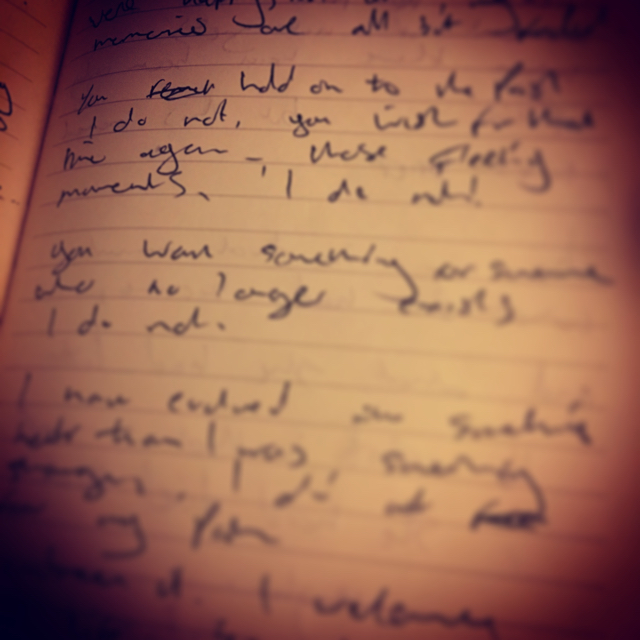 memories have all but
You hold on to the past
I do not, you wish for that
time again - those fleeting
moments, I do not!
you want something or someone
who no longer exists
I do not.
I have evolved into something
better than I was, something
stronger. I do not
my pain
it. I welcome